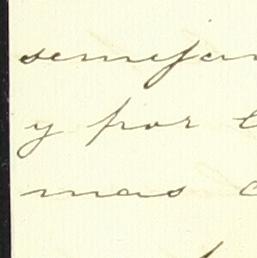 semejan
y por
mas